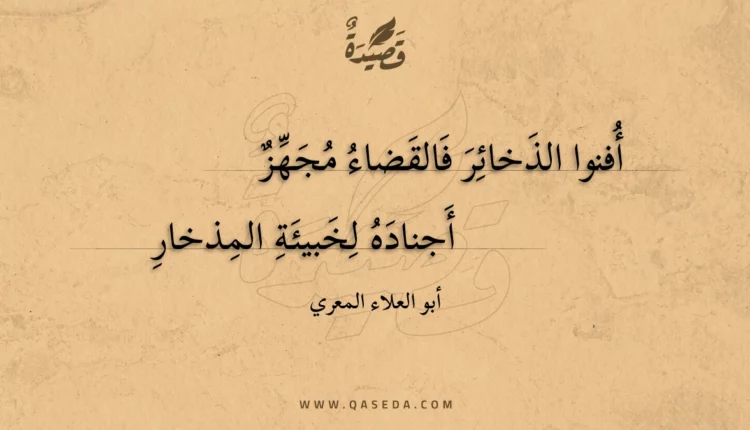 قَصِيدَةٌ
أُفنوا الذَخائِرَ فَالقَضاءُ مُجَهِّزٌ
أَجنادَهُ لِخَبيئَةِ المِذخارِ
أبو العلاء المعري
WWW.QASEDA.COM